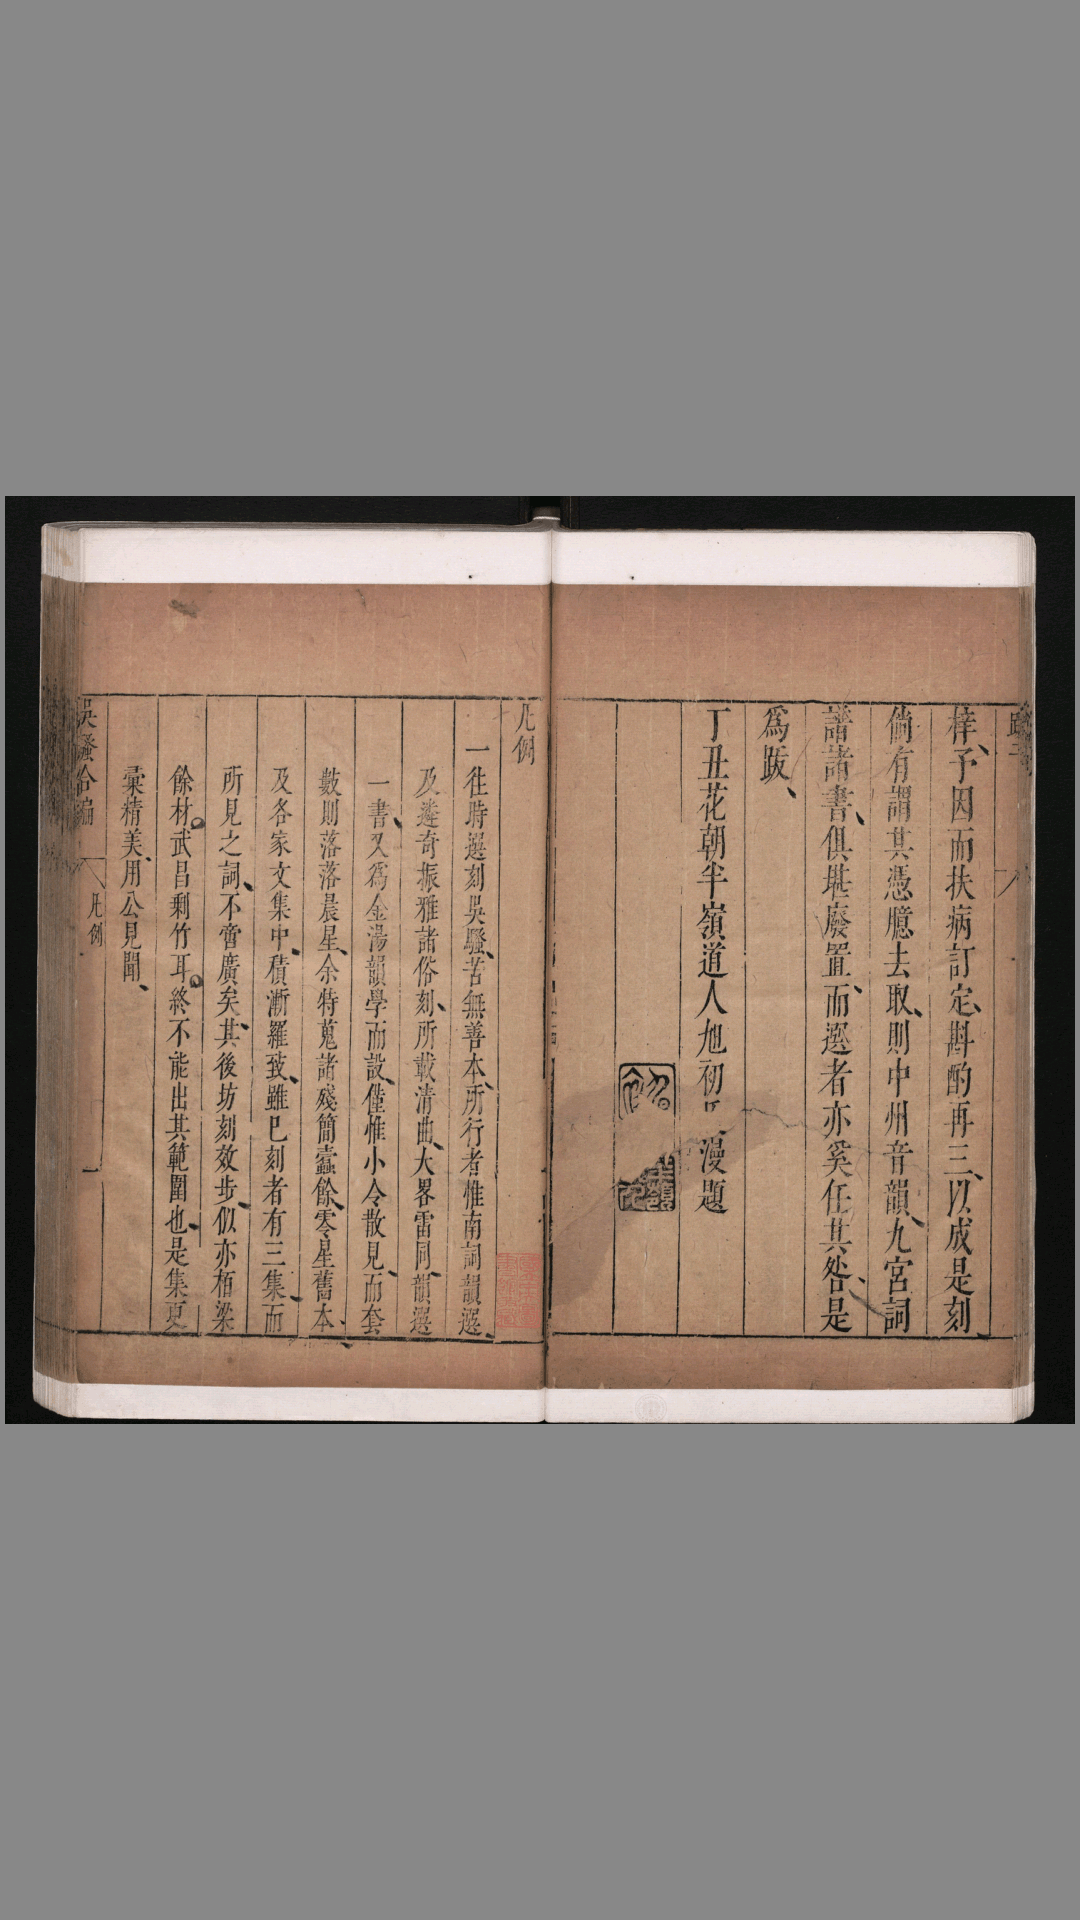 梓、予因而扶病訂定、斟酌再三、以成是刻、
倘有謂其憑臆去取、則中州音韻、九宮詞
譜諸書、俱堪廢置、而選者亦奚任其咎、是
爲跋、
丁丑花朝半嶺道人旭初 漫題
凡例
一往時選刻吳騷、苦無善本、所行者惟南詞韻選、
及遴奇振雅諸俗刻、所載清曲、大畧雷同、韻選
一書、又爲金湯韻學而設、僅惟小令散見、而套
數則落落晨星、余特蒐諸殘簡蠹餘、零星舊本、
及各家文集中、積漸羅致、雖已刻者有三集、而
所見之詞、不啻廣矣、其後坊刻效步、似亦栢梁
餘材。武昌剩竹耳。終不能出其範圍也、是集更
彙精美、用公見聞、
吳騷合編
凡例
一